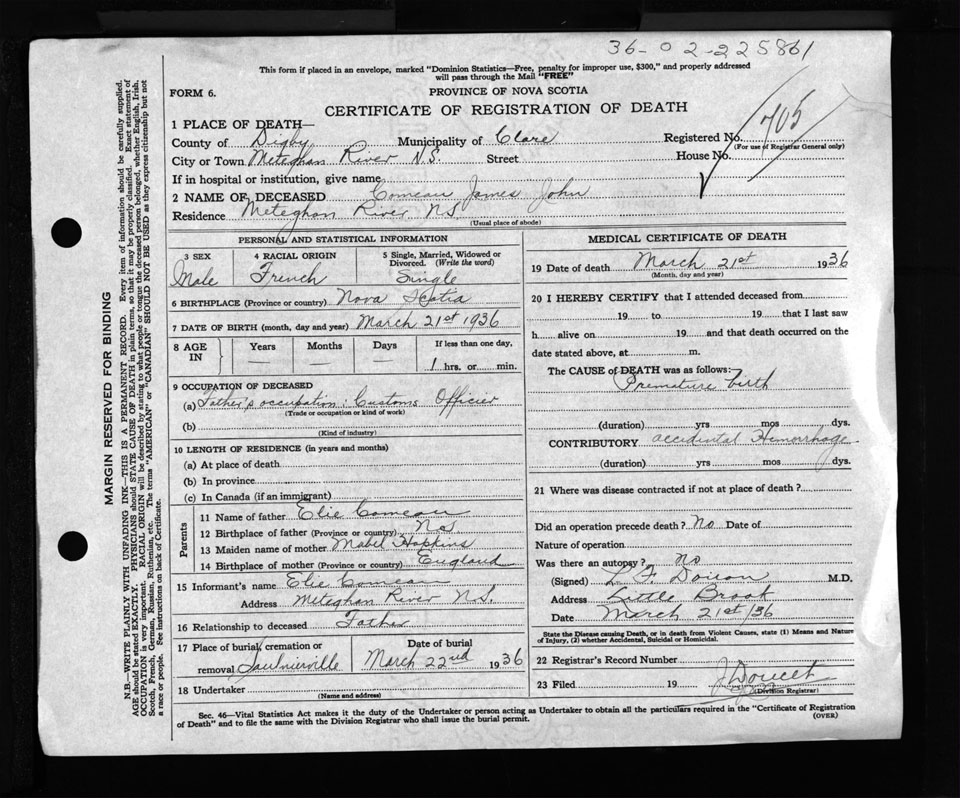 36-02-225861
This form if placed in an envelope, marked "Dominion Statistics—Free, penalty for improper use, $300," and properly addressed
will pass through the Mail "FREE"
FORM 6.
PROVINCE OF NOVA SCOTIA
CERTIFICATE OF REGISTRATION OF DEATH
1 PLACE OF DEATH—
County of Digby Municipality of Clare Registered No. 705
(For use of Registrar General only)
City or Town Meteghan River N.S. Street House No.
If in hospital or institution, give name
2 NAME OF DECEASED Comeau James John
Residence Meteghan River NS.
(Usual place of abode)
PERSONAL AND STATISTICAL INFORMATION
3 SEX
Male
4 RACIAL ORIGIN
French
5 Single, Married, Widowed or
Divorced. (Write the word)
Single
6 BIRTHPLACE (Province or country) Nova Scotia
7 DATE OF BIRTH (month, day and year) March 21st 1936
8 AGE IN
Years
Months
Days
If less than one day,
1 hrs. or min.
9 OCCUPATION OF DECEASED
(a) Father's occupation: Customs Officer
(Trade or occupation or kind of work)
(b)
(Kind of industry)
10 LENGTH OF RESIDENCE (in years and months)
(a) At place of death
(b) In province
(c) In Canada (if an immigrant)
Parents
11 Name of father Elie Comeau
12 Birthplace of father (Province or country) NS
13 Maiden name of mother Mabel Hopkins
14 Birthplace of mother (Province or country) England
15 Informant's name Elie Comeau
Address Meteghan River N.S.
16 Relationship to deceased Father
17 Place of burial, cremation or
removal Saulnierville
Date of burial
March 22nd 1936
18 Undertaker
(Name and address)
MEDICAL CERTIFICATE OF DEATH
19 Date of death March 21st 1936
(Month, day and year)
20 I HEREBY CERTIFY that I attended deceased from
19 to 19 that I last saw
h alive on 19 and that death occurred on the
date stated above, at m.
The CAUSE of DEATH was as follows:
Premature birth
(duration) yrs mos dys.
CONTRIBUTORY accidental Hemorrhage
(duration) yrs mos dys.
21 Where was disease contracted if not at place of death?
Did an operation precede death? No Date of
Nature of operation
Was there an autopsy? no
(Signed) M.D.
Address Little Brook
Date March 21st/36
State the Disease causing Death, or in death from Violent Causes, state (1) Means and Nature
of Injury, (2) whether Accidental, Suicidal or Homicidal.
22 Registrar's Record Number
23 Filed 19 J Doucet
(Division Registrar)
Sec. 46—Vital Statistics Act makes it the duty of the Undertaker or person acting as Undertaker to obtain all the particulars required in the "Certificate of Registration
of Death" and to file the same with the Division Registrar who shall issue the burial permit.
(OVER)
MARGIN RESERVED FOR BINDING
N.B.—WRITE PLAINLY WITH UNFADING INK—THIS IS A PERMANENT RECORD. Every item of information should be carefully supplied.
AGE should be stated EXACTLY. PHYSICIANS should STATE CAUSE OF DEATH in plain terms, so that it may be properly classified. Exact statement of
OCCUPATION is very important. RACIAL ORIGIN will be described by stating to what people or tongue the deceased person belonged, whether English, Irish,
Scotch, French, German, Russian, Ruthenian, etc. The terms "AMERICAN" or "CANADIAN" SHOULD NOT BE USED as they express citizenship but not
a race or people. See instructions on back of Certificate.